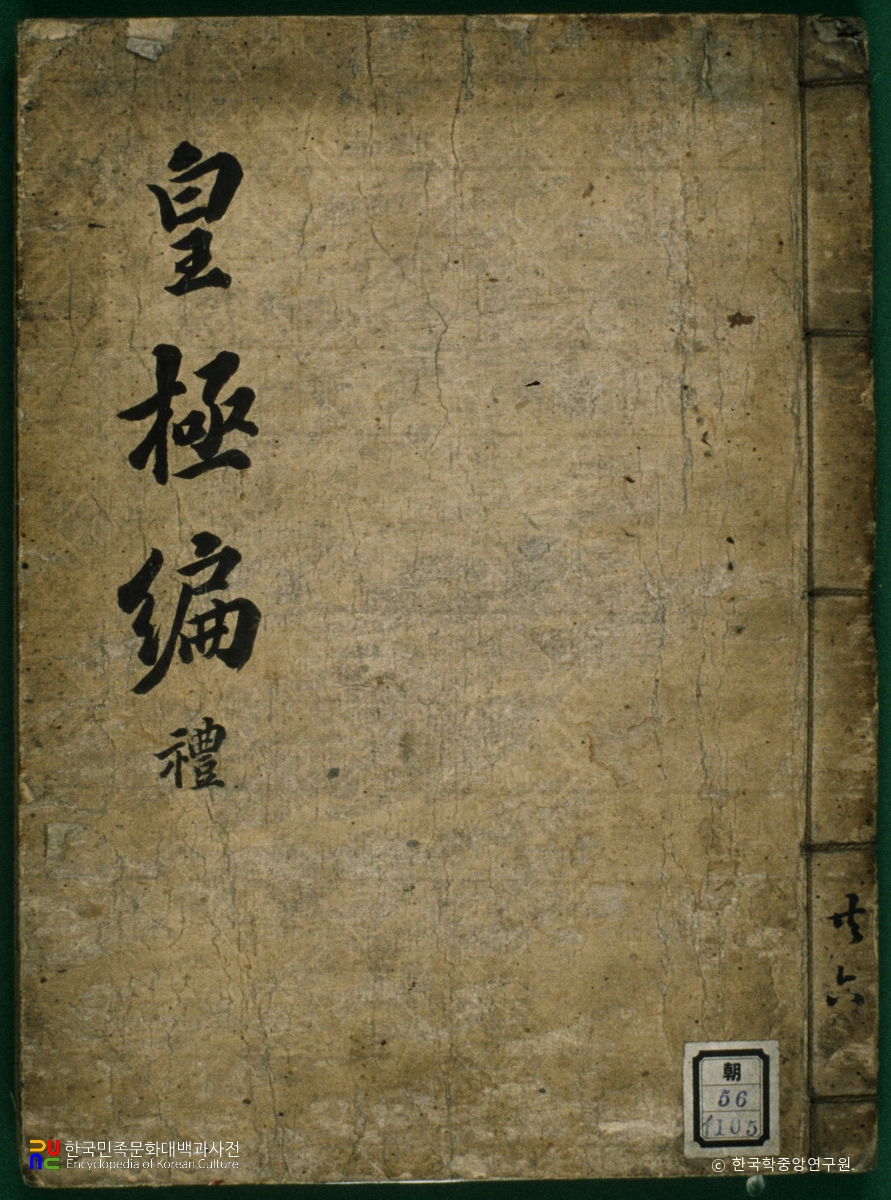 皇極編 禮
共六
朝
56
1105
한국민족문화대백과사전
Encyclopedia of Korean Culture
ⓒ 한국학중앙연구원